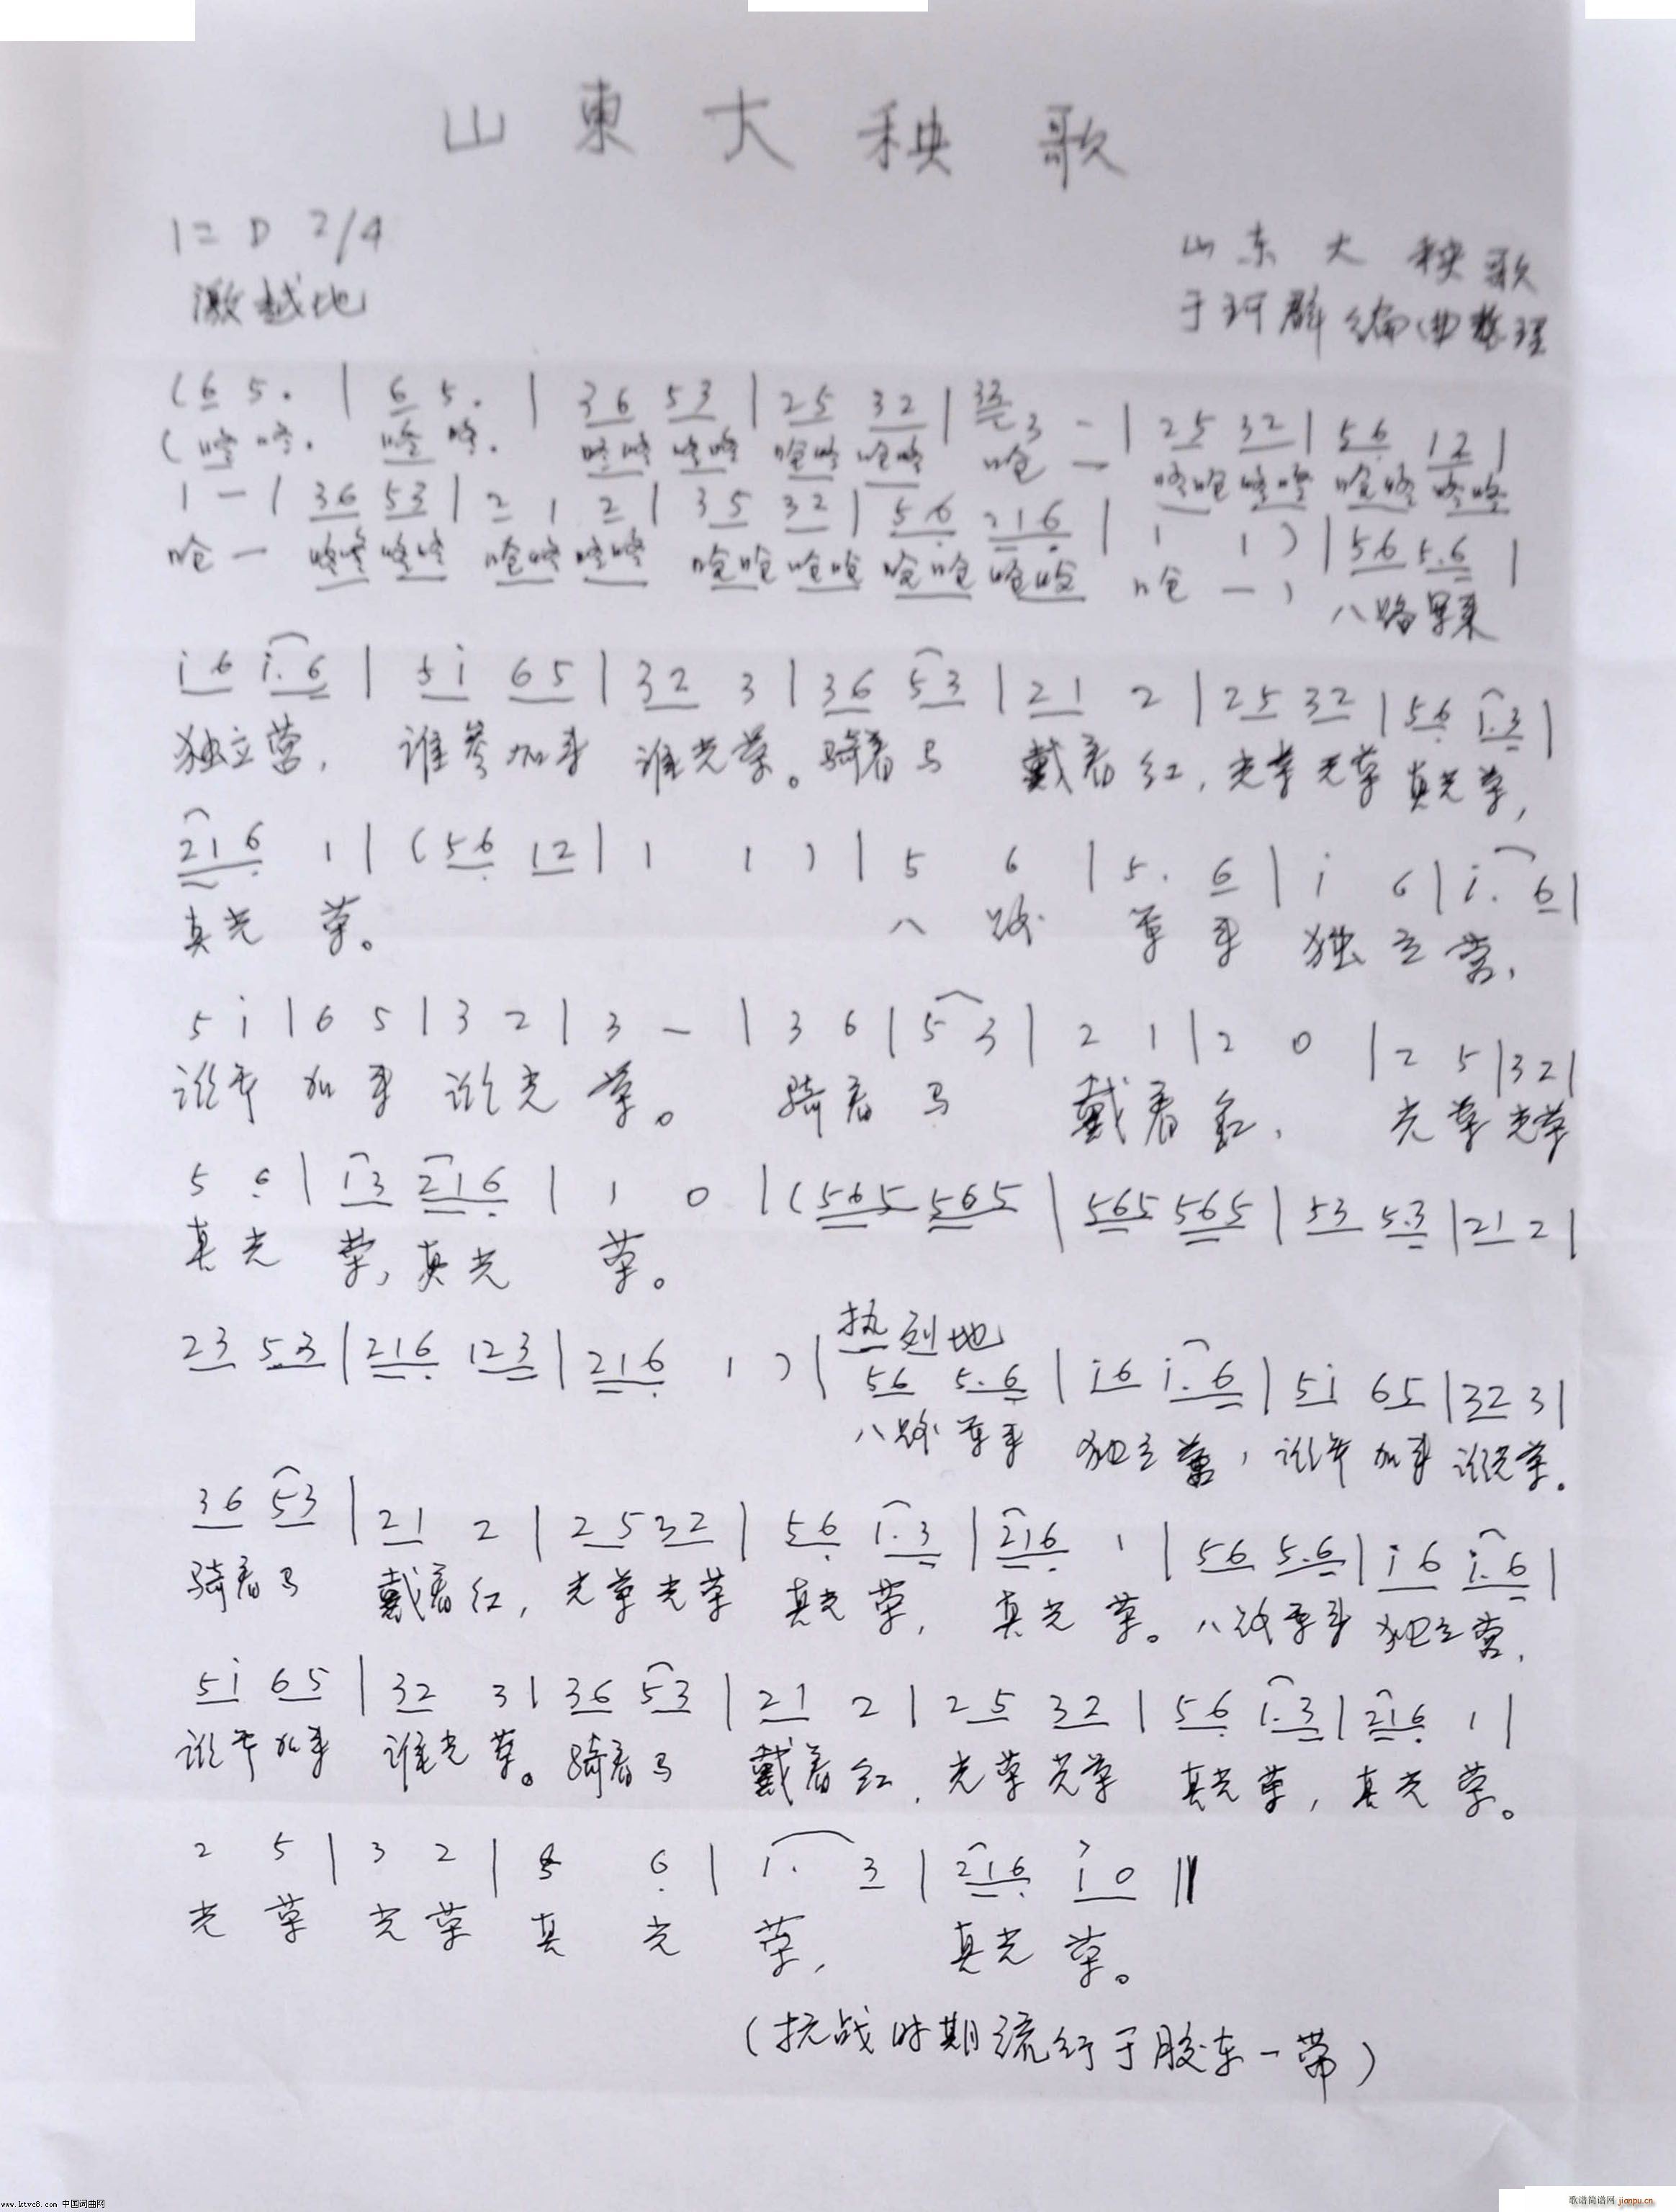 山東大秧歌
1=D 2/4
山东大秧歌
激越地
于珂群编曲整理
(6 5. | 6 5. | 36 53 | 25 32 | 3 - | 25 32 | 56 12 |
1 - | 36 53 | 2 1 2 | 35 32 | 56 216 | 1 1 ) | 56 5.6 |
八路军来
i6 i.6 | 5i 65 | 32 3 | 36 53 | 21 2 | 25 32 | 56 1.3 |
独立营, 谁参加来 谁光荣。骑着马 戴着红, 光荣光荣 真光荣,
216 1 | (56 12 | 1 1 ) | 5 6 | 5. 6 | i 6 | i. 6 |
真光 荣。 八 路 军 来 独 立 营,
5 i | 6 5 | 3 2 | 3 - | 3 6 | 5 3 | 2 1 | 2 0 | 2 5 | 3 2 |
谁参 加来 谁光 荣。 骑着马 戴着红, 光荣光荣
5 6 | 13 216 | 1 0 | (565 565 | 565 565 | 53 5.3 | 21 2 |
真光 荣, 真光 荣。
23 5.3 | 216 123 | 216 1 ) | 热烈地
56 5.6 | i6 i.6 | 5i 65 | 32 3 |
八路军来 独立营, 谁参加来 谁光荣。
36 53 | 21 2 | 25 32 | 56 1.3 | 216 1 | 56 5.6 | i6 i.6 |
骑着马 戴着红, 光荣光荣 真光荣, 真光荣。八路军来 独立营,
5i 65 | 32 3 | 36 53 | 21 2 | 25 32 | 56 1.3 | 216 1 |
谁参加来 谁光荣。骑着马 戴着红, 光荣光荣 真光荣, 真光荣。
2 5 | 3 2 | 5 6 | 1. 3 | 216 i 0 ‖
光 荣 光荣 真 光 荣, 真光 荣。
(抗战时期流行于胶东一带)
www.ktvc8.com 中国词曲网
歌谱简谱网 jianpu.cn